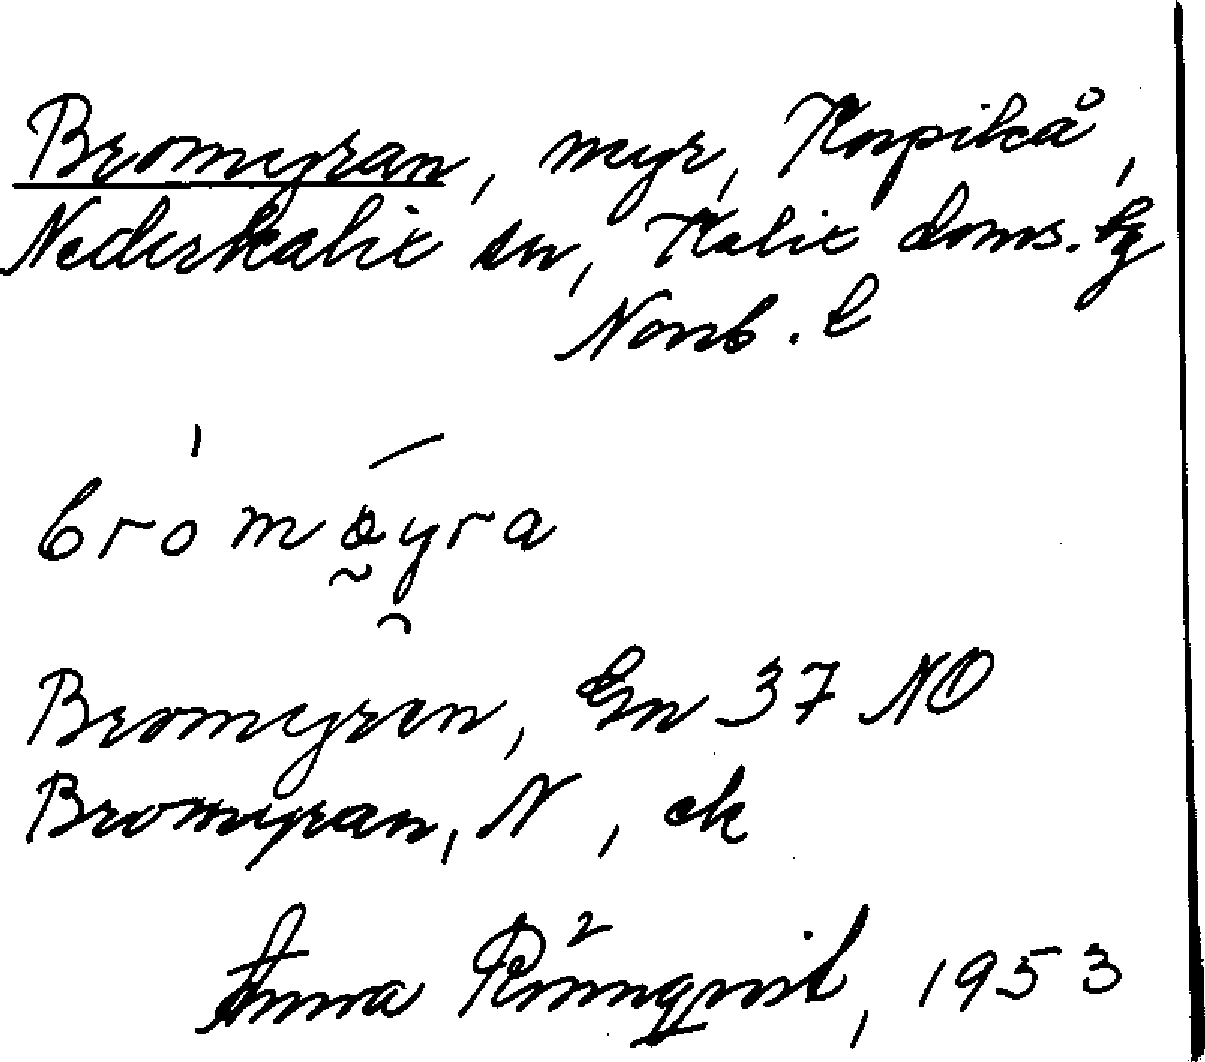 Bromyran, myr, Korpikå,
Nederkalix sn, Kalix doms. tg
Norrb. l
bromöyra
Bromyren, Gn 37 NO
Bromyran, N, ek
Anna Rönnqvist, 1953